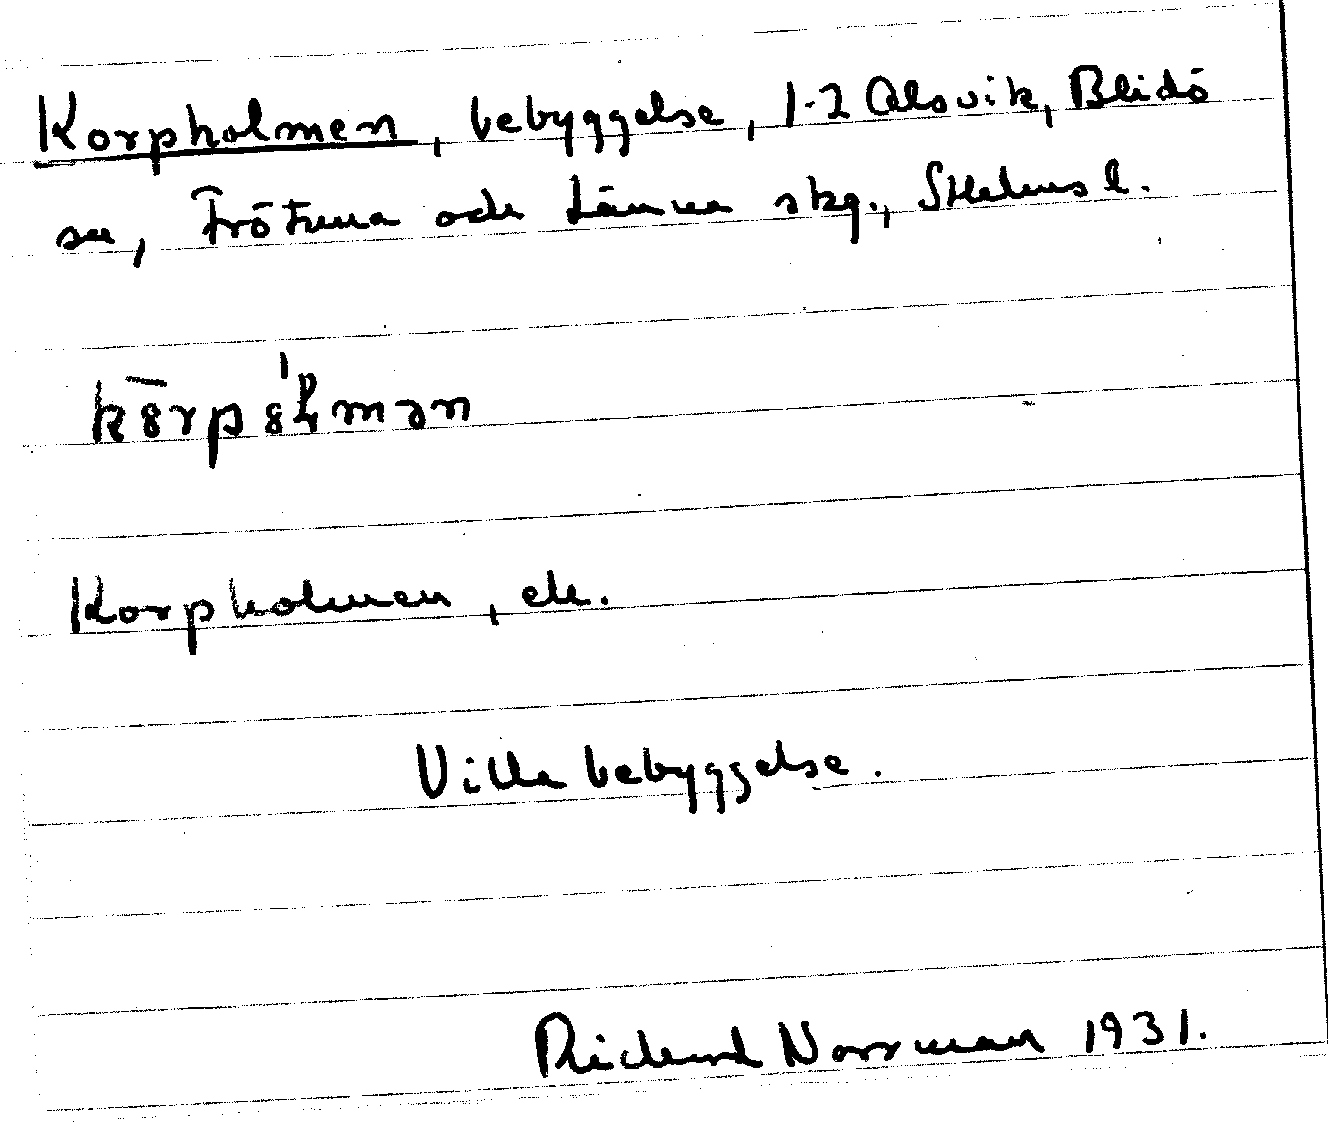 Korpholmen, bebyggelse, 1-2 Alsvik, Blidö
sn, Frötuna och Länna skg., Sthlms l.
Korpholmen, ek.
Villabebyggelse.
Richard Norrman 1931.